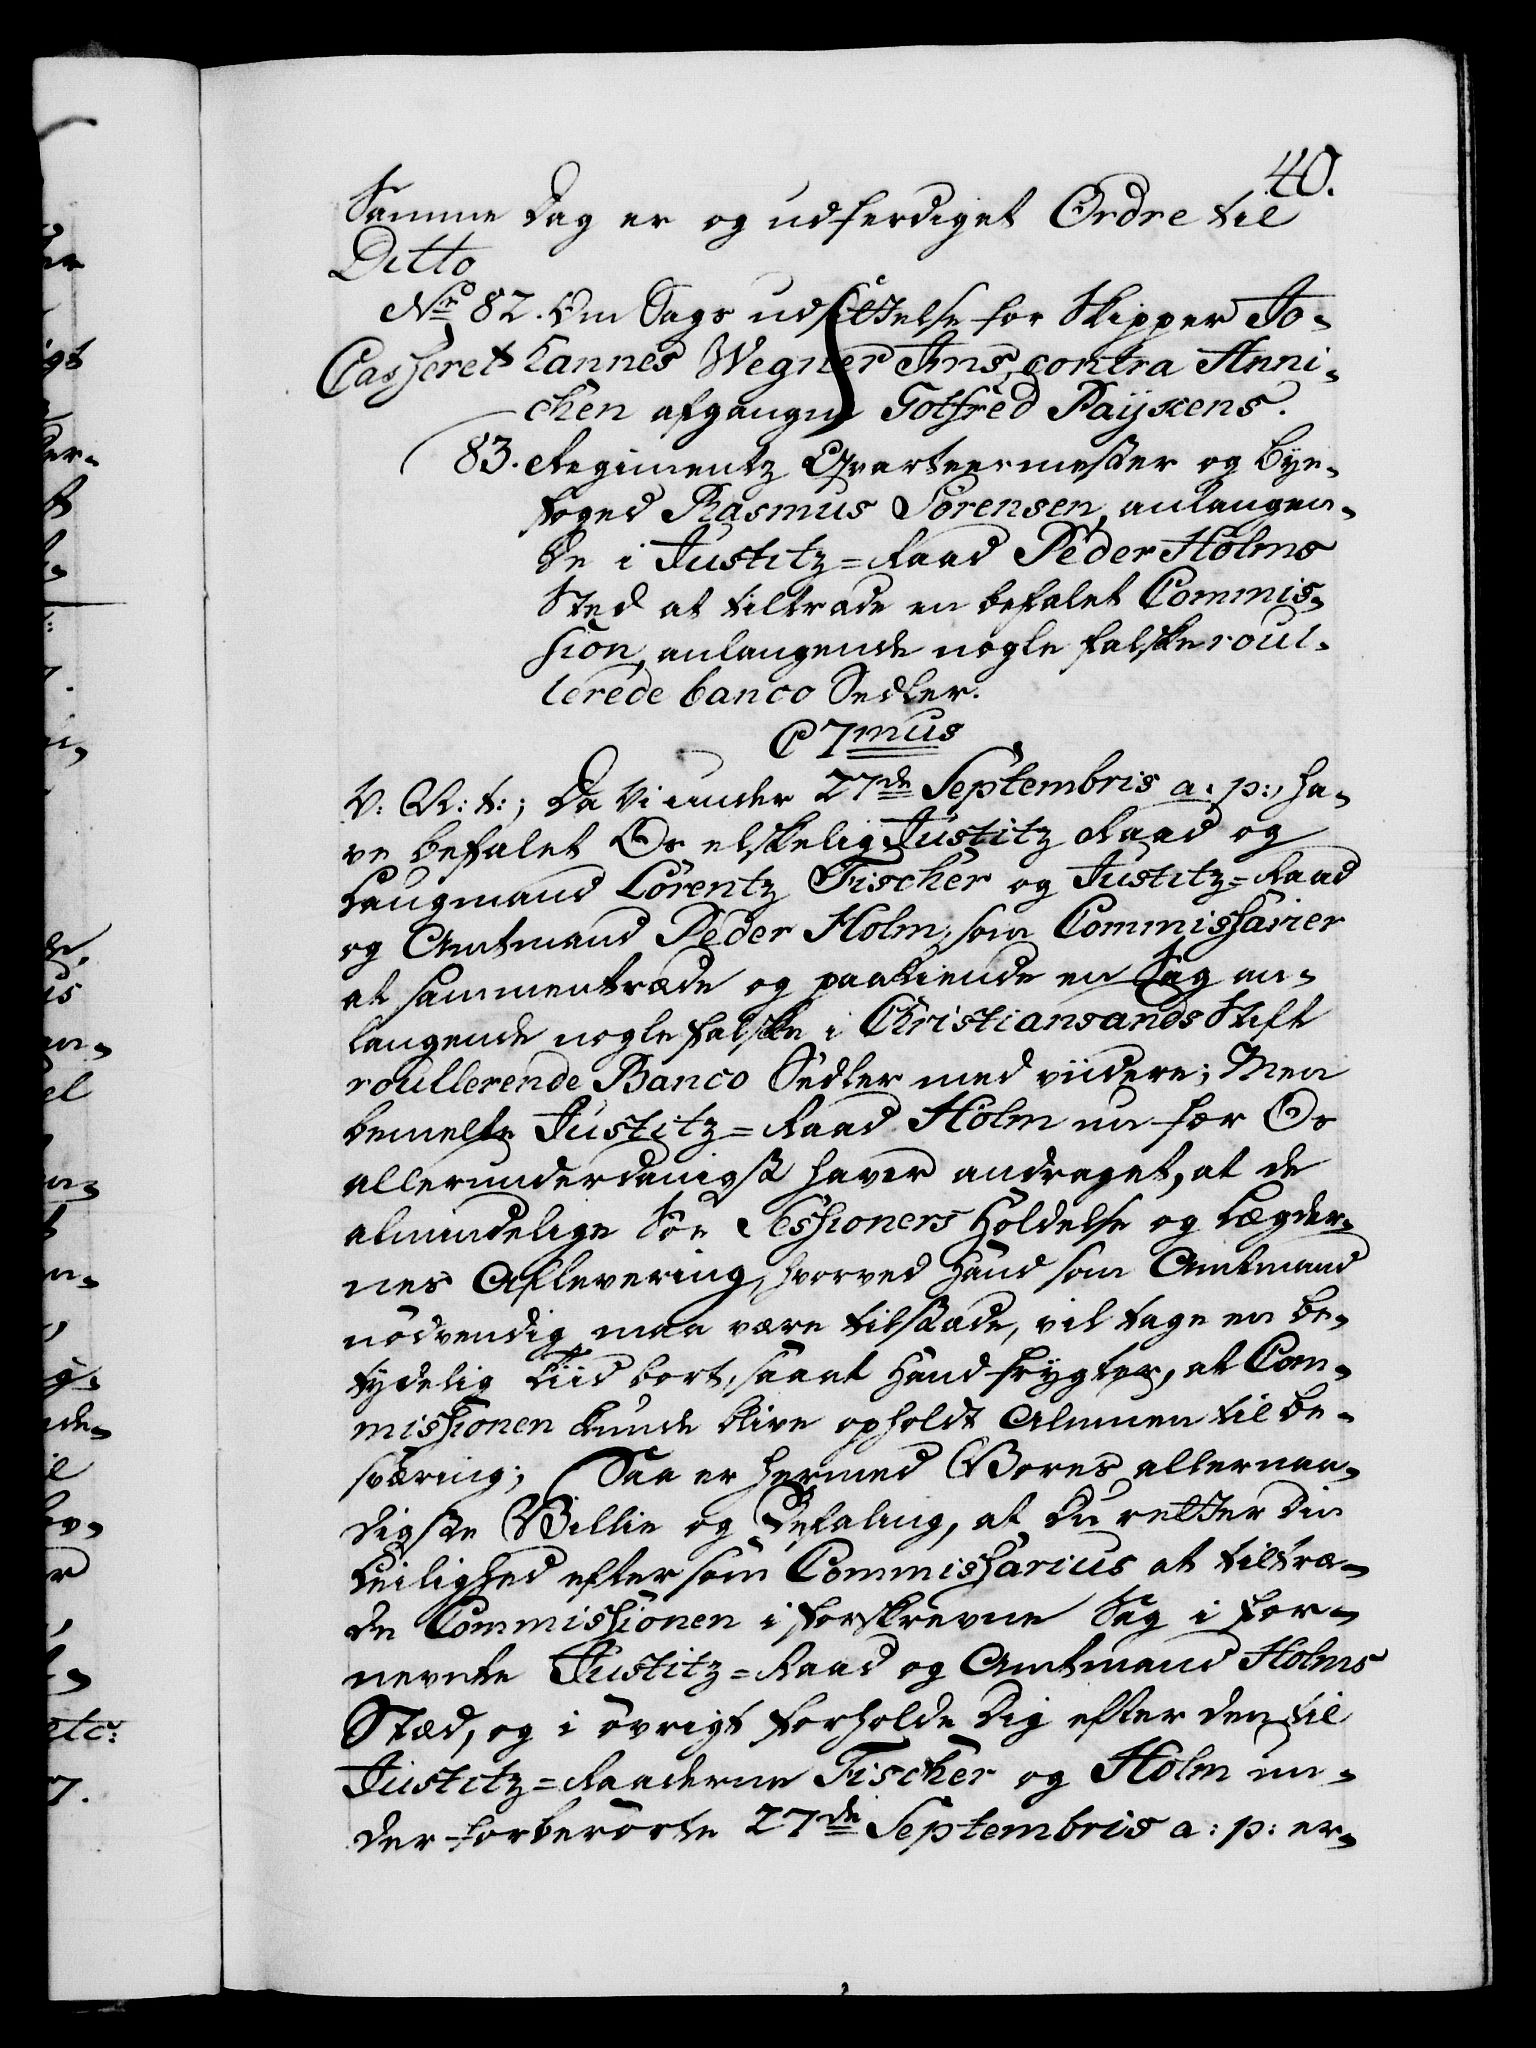 40.
Samme Dag er og udferdiget Ordre til
Ditto
No 82. Om Sags udsettelse for Skipper Jo-
Casseret hannes Wegner Jens, contra Anni-
chen afgangne Gotfred Paÿkens.
83. Regimentz Qvarteermester og bÿe-
foged Rasmus Sörensen, anlangen-
de i Justitz=Raad Peder Holms
Sted at tiltræde en befalet Commis-
sion, anlangende nogle falske roul-
lerede banco Sedler.
C 7mus
V: G: t:; Da Vi under 27de Septembris a: p:, ha-
ve befalet Os elskelig Justitz Raad og
Laugmand Lörentz Fischer og Justitz=Raad
og Amtmand Peder Holm, som Commissarier
at sammentræde og paakiende en Sag an-
langende nogle falske i Christiansands Stift
roullerende Banco Sedler med viidere; Men
bemelte Justitz=Raad Holm nu for Os
allerunderdanigst haver andraget, at de
almindelige Söe Sessioners Holdelse og Lægder-
nes Aflevering, hvorved hand som Amtmand
nödvendig maa være tilstæde, vil tage en be-
tydelig Tiid bort, saa at hand frygter, at Com-
missionen kunde blive opholdt Almuen til be-
sværing; Saa er hermed Vores allernaa-
digste Villie og Befaling, at du retter din
Leilighed efter som Commissarius at tiltræ-
de Commissionen i forskrevne Sag i for-
nevnte Justitz=Raad og Amtmand Holms
Stæd, og i övrigt forholde dig efter den til
Justitz=Raaderne Fischer og Holm un-
der forberörte 27de Septembris a: p: er-